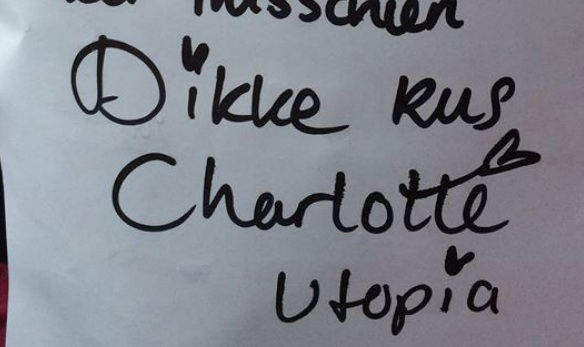 misschien
Dikke kus
Charlotte
Utopia